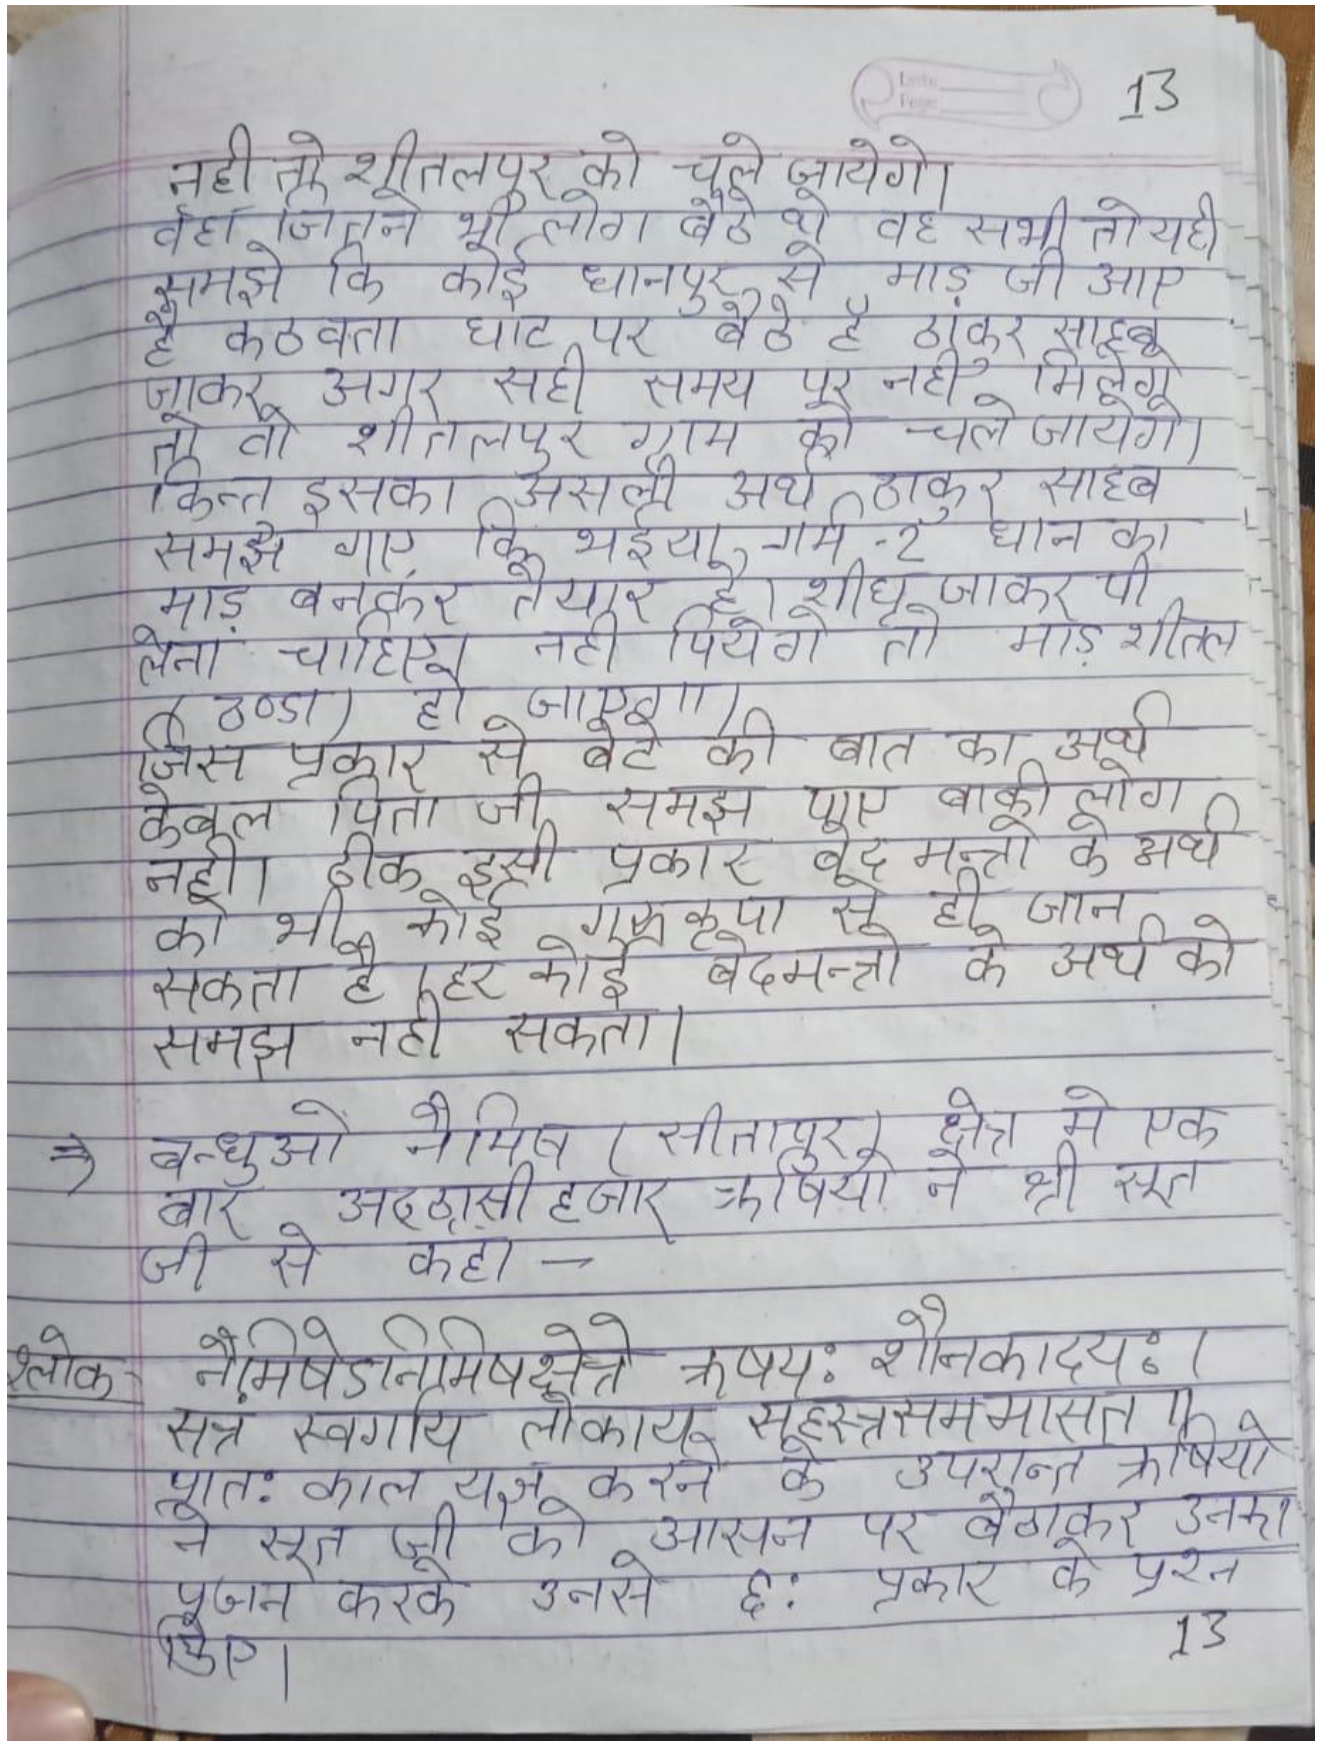 13
Date
Page
नही तो शीतलपुर को चले जायेगे।
वहाँ जितने भी लोग बैठे थे वह सभी तो यही
समझे कि कोई धानपुर से माड़ जी आए
है कठवता घाट पर बैठे है ठाकुर साहब
जाकर अगर सही समय पर नही मिलेगे
तो वो शीतलपुर ग्राम को चले जायेगे।
किन्त इसका असली अर्थ ठाकुर साहब
समझे गए कि भईया गर्म-2 धान का
माड़ बनकर तैयार है। शीघ्र जाकर पी
लेना चाहिए नही पियेगे तो माड़ शीतल
(ठण्डा) हो जाएगा।
जिस प्रकार से बेटे की बात का अर्थ
केबल पिता जी समझ पाए बाकी लोग
नही। ठीक इसी प्रकार बेद मन्त्रो के अर्थ
को भी कोई गुरु कृपा से ही जान
सकता है। हर कोई बेदमन्त्रो के अर्थ को
समझ नही सकता।
⇒ बन्धुओ नैमिष (सीतापुर) क्षेत्र मे एक
बार अट्ठासी हजार ऋषियो ने श्री सूत
जी से कहा –
श्लोक- नैमिषेऽनिमिषक्षेत्रे ऋषयः शौनकादयः।
सत्रं स्वर्गाय लोकाय सहस्त्रसममासत॥
प्रातः काल यज्ञ करने के उपरान्त ऋषियो
ने सूत जी को आसन पर बैठाकर उनका
पूजन करके उनसे छः प्रकार के प्रश्न
किए।
13